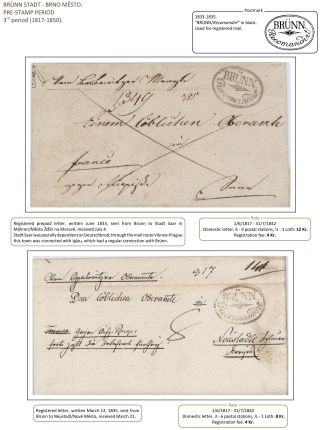 BRÜNN STADT - BRNO MĚSTO.
PRE-STAMP PERIOD
3rd period (1817-1850).
Postmark
1833-1835.
"BRÜNN/Recomandirt" in black.
Used for registered mail.
BRÜNN.
Recomandirt.
BRÜNN.
Recomandirt.
Einem Löblichen Oberamte
franco
Brünn
Registered prepaid letter, written June 1833, sent from Brünn to Stadt Saar in
Mähren/Město Žďár na Moravě, received July 4.
Stadt Saar was postally dependent on Deutschbrod; through the mail route Vienna-Prague
this town was connected with Iglau, which had a regular connection with Brünn.
Rate
1/6/1817 - 31/7/1842
Domestic letter, 6 - 9 postal stations, ½ - 1 Loth: 12 Kr.
Registration fee: 4 Kr.
917
Dem Löblichen Oberamte
BRÜNN.
Recomandirt.
Neustadtl
Registered letter, written March 12, 1835, sent from
Brünn to Neustadtl/Nové Město, received March 21.
Rate
1/6/1817 - 31/7/1842
Domestic letter, 3 - 6 postal stations, ½ - 1 Loth: 8 Kr.
Registration fee: 4 Kr.